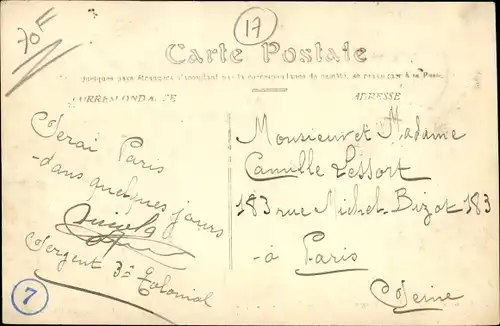 70F
17
Carte Postale
CORRESPONDANCE
ADRESSE
Serai Paris
dans quelques jours
Sergent 3e Colonial
7
Monsieur et Madame
Camille Lessort
183 rue Michel-Bizot 183
à Paris
Seine